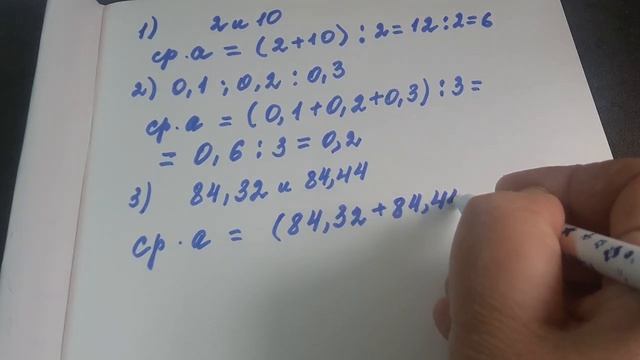 1) 2 и 10
ср. а = (2+10) : 2 = 12 : 2 = 6
2) 0,1 ; 0,2 ; 0,3
ср. а = (0,1+0,2+0,3) : 3 =
= 0,6 : 3 = 0,2
3) 84,32 и 84,44
ср. а = (84,32 + 84,44